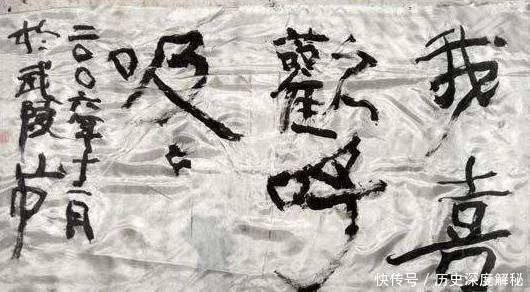 我喜
歡呼
吸
二〇〇六年十二月
於武陵山中
快传号 / 历史深度解秘